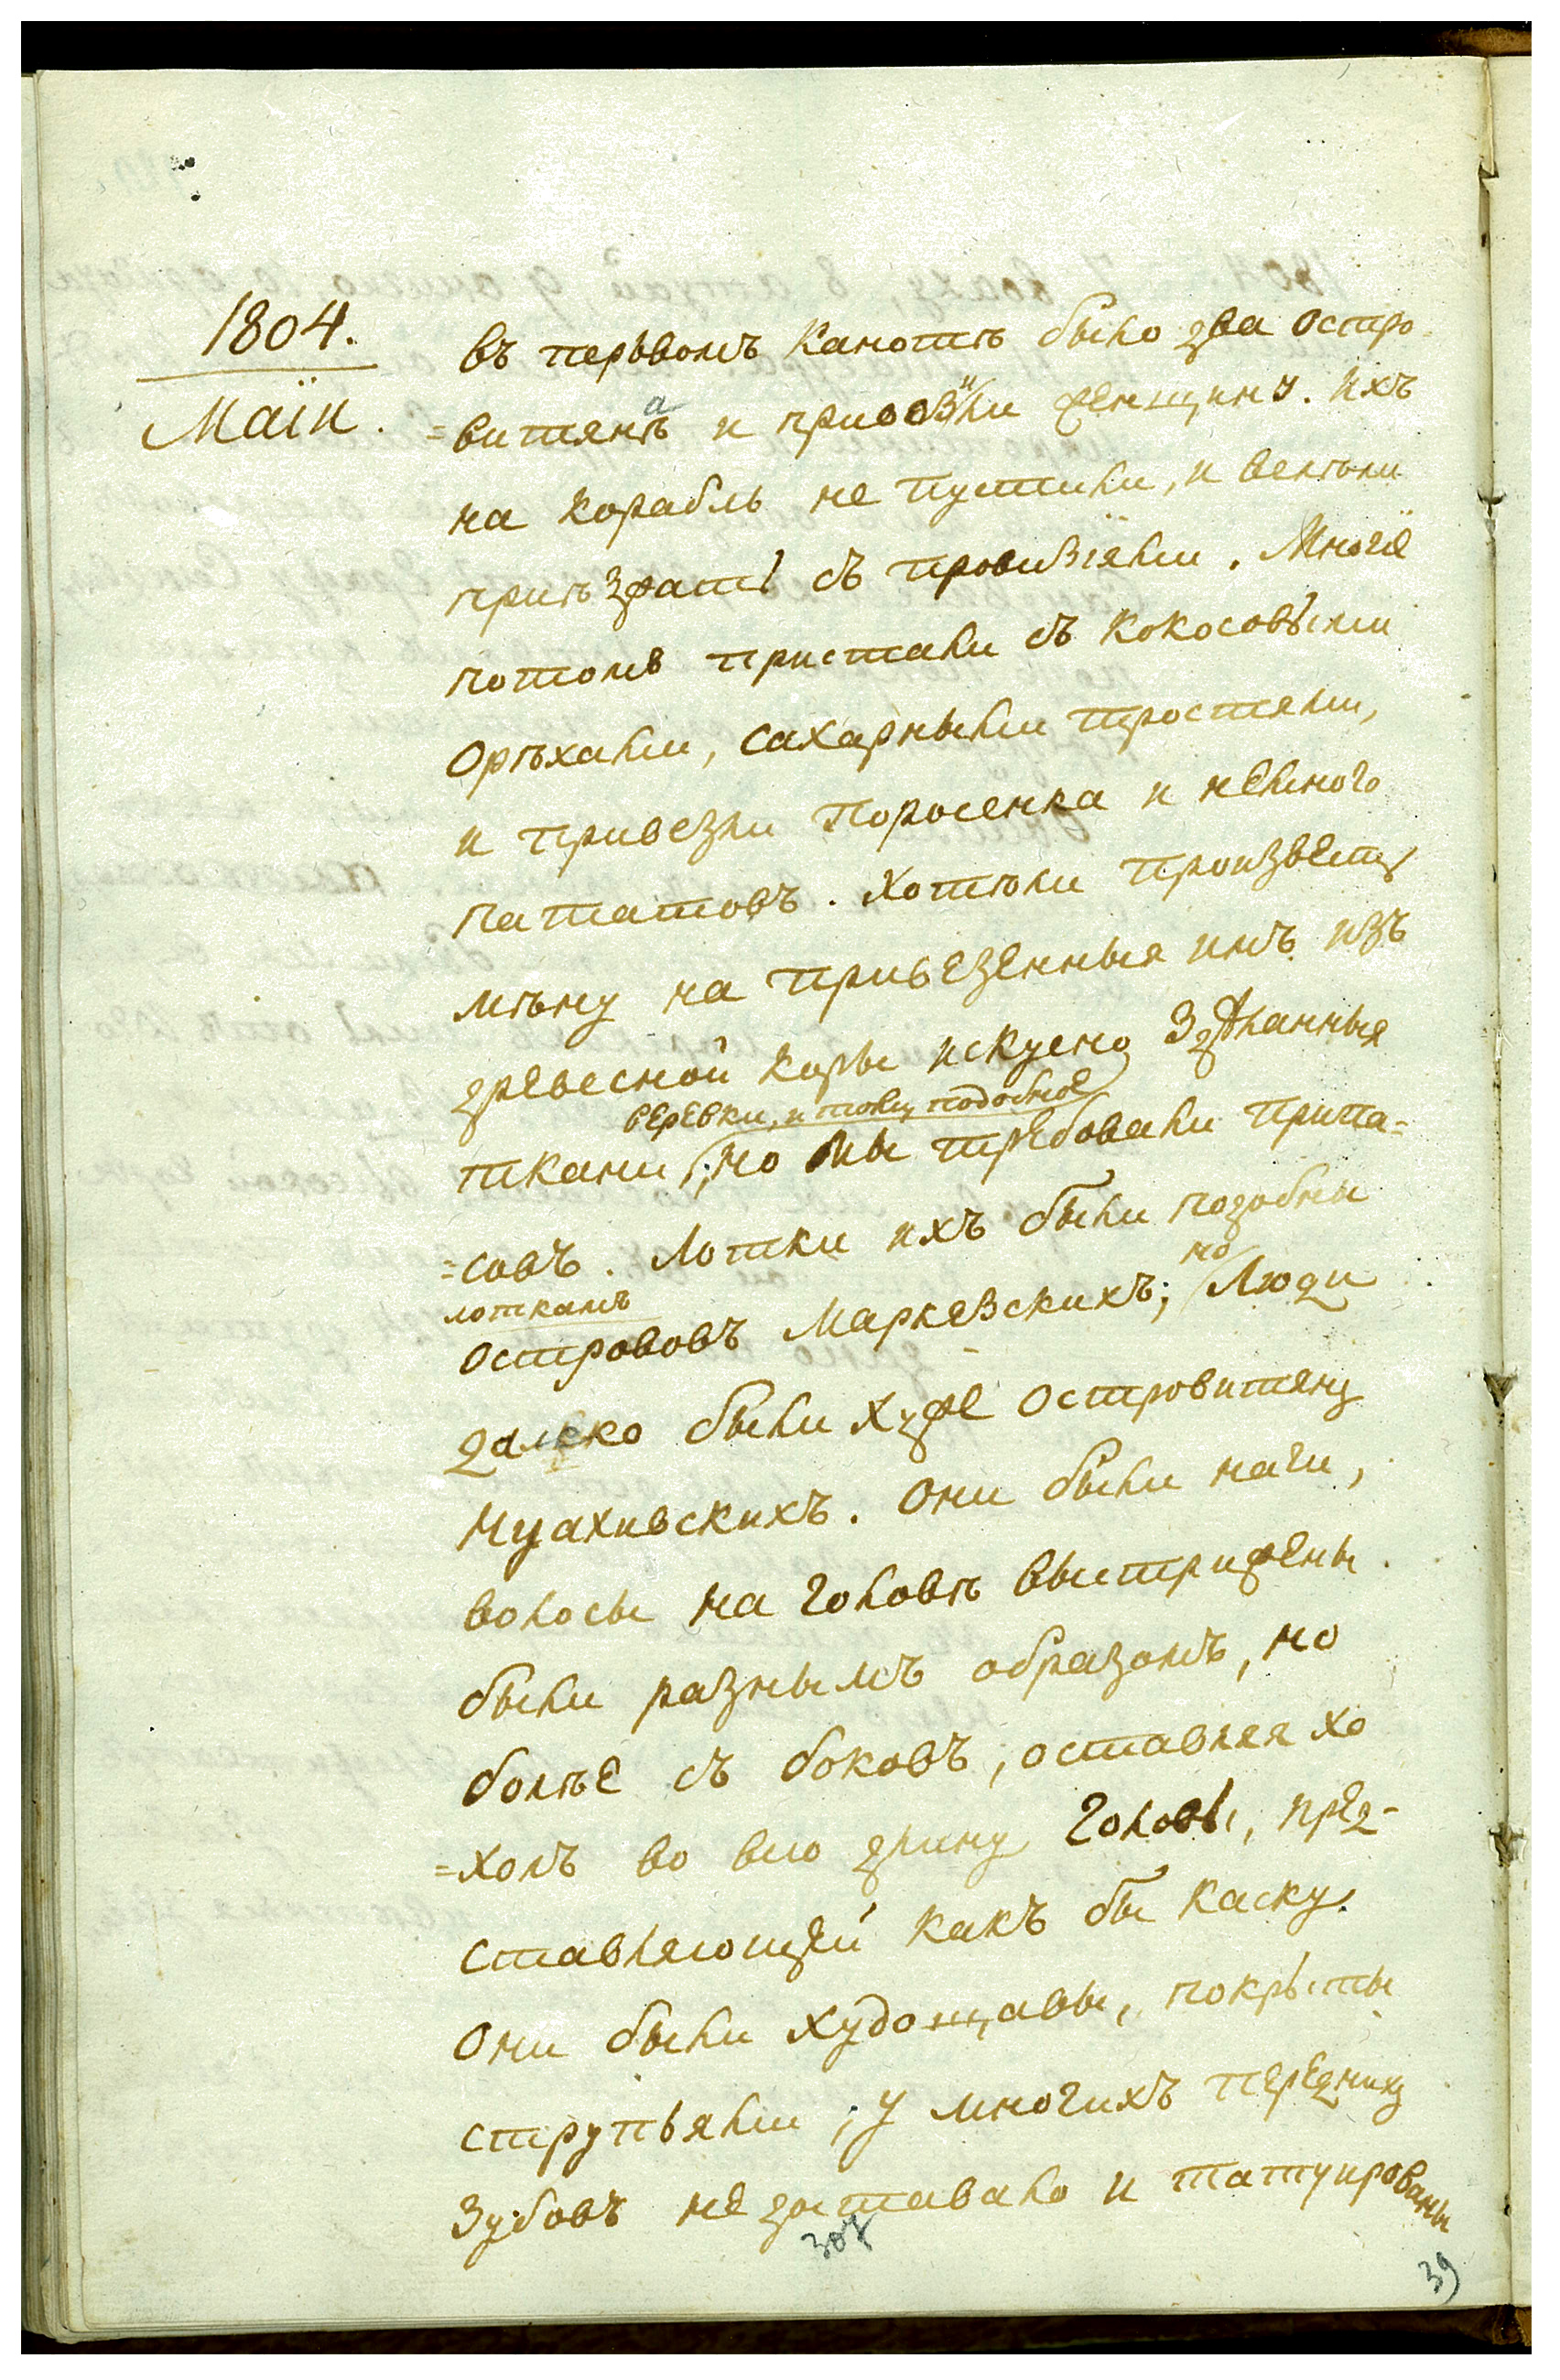 1804.
Маія.
въ первомъ Канотѣ было два остро-
=витянъа и привозили женщину. ихъ
на корабль не пустили, и велѣли
приѣзжать съ провизіями. Многіе
потомъ пристали съ кокосовыми
орѣхами, сахарными тростями,
и привезли поросенка и немного
пататовъ. Хотѣли произвесть
мѣну на привезенныя имъ изъ
древесной коры искусно здѣланныя
веревки, и тому подобное
ткани; но мы требовали припа=
=совъ. Лотки ихъ были подобны
лоткамъ
острововъ Маркезскихъ; но Люди
далеко были хуже островитянъ
Нуахивскихъ. Они были наги,
волосы на головѣ выстрижены
были разнымъ образомъ, но
болѣе съ боковъ, оставляя хо
=холъ во всю длину головы, пред-
ставляющей какъ бы каску.
Они были худощавы, покрыты
струпьями; у многихъ переднихъ
зубовъ не доставало и татуированы
39